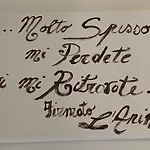 .. Molto Spesso
mi Perdete
i mi Ritrovate.
Firmato
L'Ani